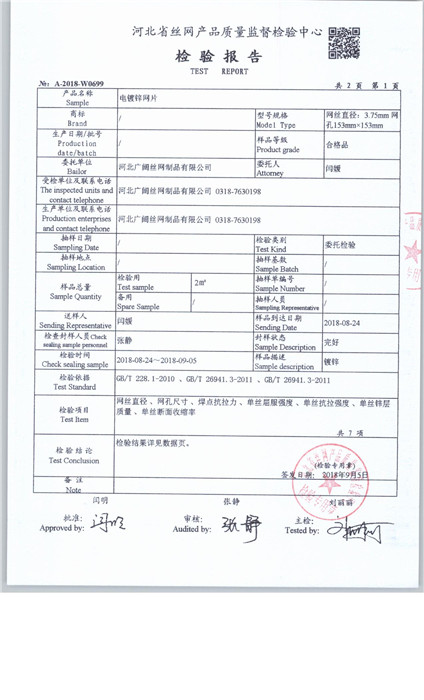 河北省丝网产品质量监督检验中心
检验报告
TEST REPORT
№: A-2018-W0699
共 2 页 第 1 页
产品名称 Sample
电镀锌网片
商标 Brand
/
型号规格 Model Type
网丝直径: 3.75mm 网孔153mm×153mm
生产日期/批号 Production date/batch
/
样品等级 Product grade
合格品
委托单位 Bailor
河北广阔丝网制品有限公司
委托人 Attorney
闫媛
受检单位及联系电话 The inspected units and contact telephone
河北广阔丝网制品有限公司 0318-7630198
生产单位及联系电话 Production enterprises and contact telephone
河北广阔丝网制品有限公司 0318-7630198
抽样日期 Sampling Date
/
检验类别 Test Kind
委托检验
抽样地点 Sampling Location
/
抽样基数 Sample Batch
/
样品总量 Sample Quantity
检验用 Test sample
2㎡
抽样单编号 Sample Number
/
备用 Spare Sample
/
抽样人员 Sampling Representative
/
送样人 Sending Representative
闫媛
样品到达日期 Sending Date
2018-08-24
检查封样人员Check sealing sample personnel
张静
封样状态 Sample Description
完好
检验时间 Check sealing sample
2018-08-24～2018-09-05
样品描述 Sample description
镀锌
检验依据 Test Standard
GB/T 228.1-2010 、GB/T 26941.3-2011 、GB/T 26941.3-2011
检验项目 Test Item
网丝直径、网孔尺寸、焊点抗拉力、单丝屈服强度、单丝抗拉强度、单丝锌层质量、单丝断面收缩率
共 7 项
检验结论 Test Conclusion
检验结果详见数据页。
(检验专用章)
签发日期: 2018年9月5日
备注 Note
闫明
张静
刘丽丽
批准: Approved by:
审核: Audited by:
主检: Tested by: